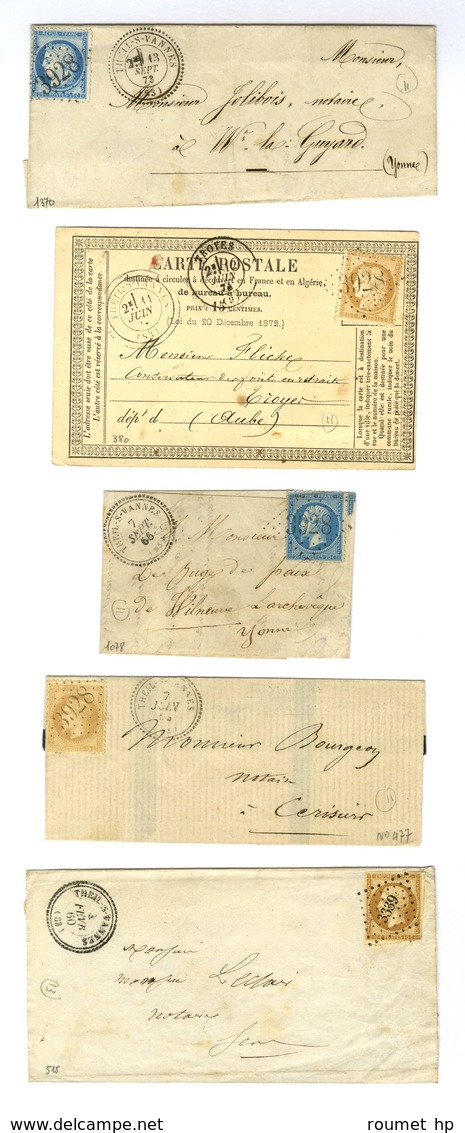 REPUB. FRANC.
3928
THEIL-S-VANNES
13
SEPT.
73
(83)
Monsieur,
11
Monsieur Jolibois, notaire,
à
Guyard.
(Yonne)
1370
TROYES
CARTE POSTALE
destinée à circuler à découvert en France et en Algérie,
de bureau à bureau.
PRIX : 15 CENTIMES.
(Loi du 20 Décembre 1872.)
11
JUIN
3928
Ce côté de la carte
doit être exclusivement
L'autre côté est réservé à la correspondance.
L'adresse seule
Monsieur Flèche
Conservateur
en retraite
Troyes
dép.t d (Aube)
11
380
La carte est à destination
d'une ville, indiquer très-exactement la
rue et le numéro de la maison.
Quand elle est destinée à une
commune rurale, indiquer le nom du
Bureau de poste qui la dessert.
THEIL-S-VANNES
7
SEPT.
65
3928
Monsieur
Le Juge de paix
de Villneuve Larchevêque
Yonne
11
1078
3928
THEIL-S-VANNES
7
JUIN
Monsieur Bourgeon
notaire
à Cerisiers
11
No 477
THEIL-S-VANNES
3
FEVR.
60
(83)
3339
Monsieur
Monsieur Leclair
notaire
Sens
13
515
www.delcampe.net
roumet hp